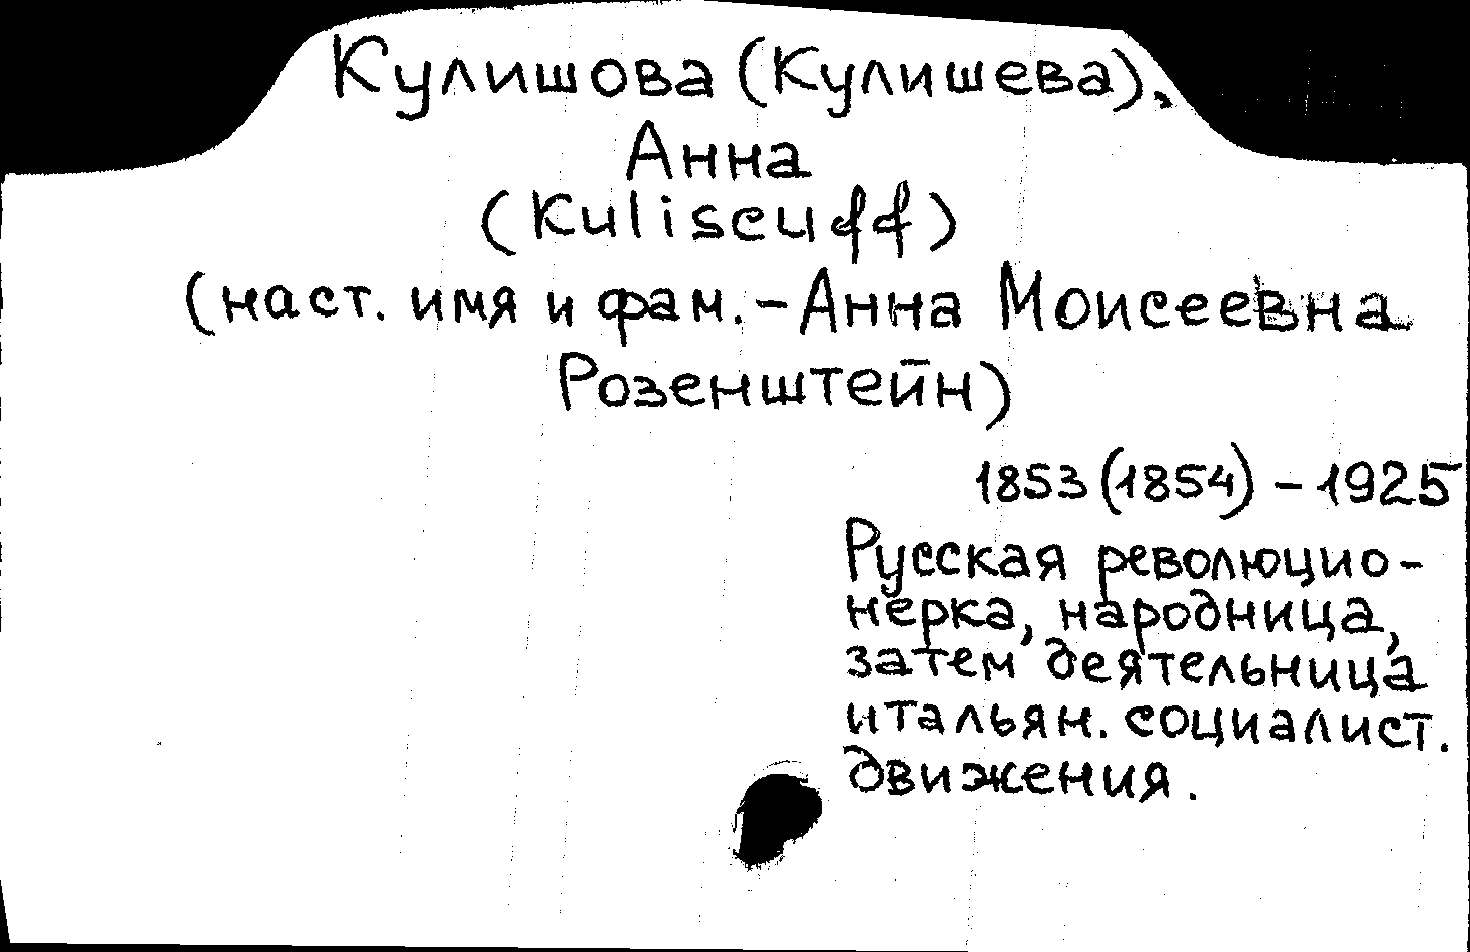 Кулишова (Кулишева),
Анна
(Kuliscuff)
(наст. имя и фам. - Анна Моисеевна
Розенштейн)
1853 (1854) - 1925
Русская революцио-
нерка, народница,
затем деятельница
итальян. социалист.
движения.